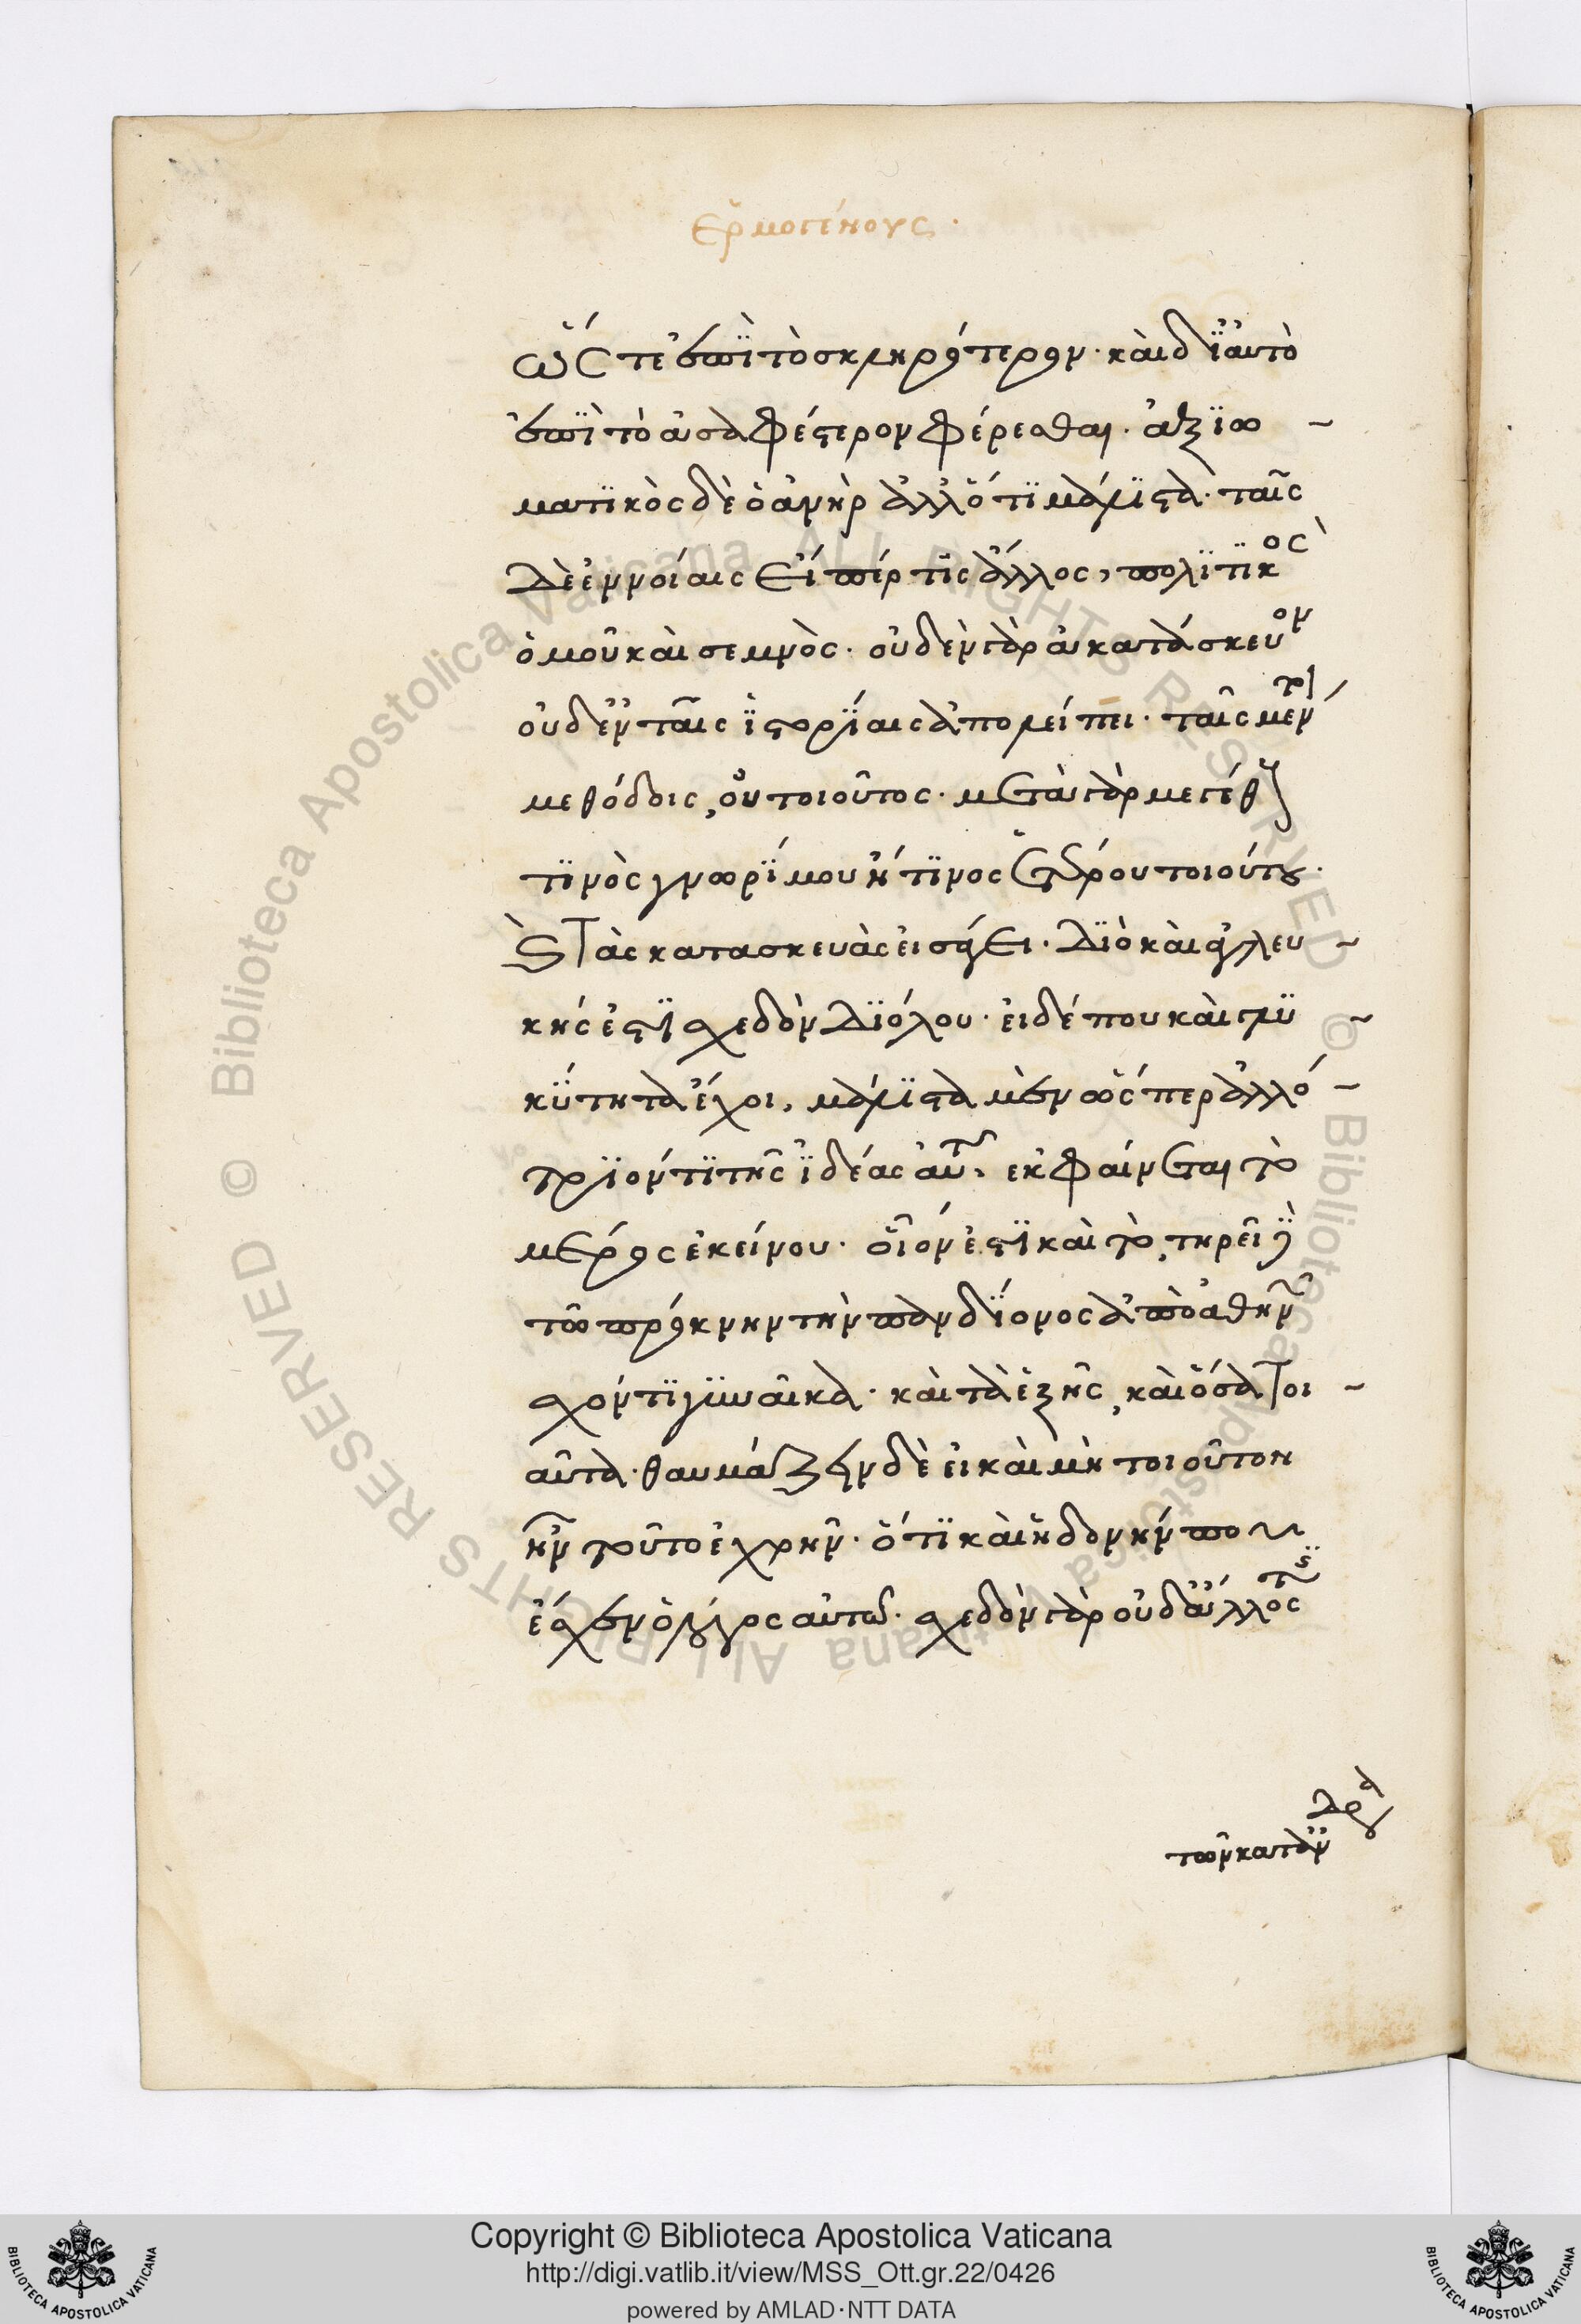 Ἑρμογένους.
ὥστε ἐπὶ τὸ σκληρότερον. καὶ δι' αὐτὸ
ἐπὶ τὸ ἀσαφέστερον φέρεσθαι. ἀξιω
ματικὸς δὲ ὁ ἀνὴρ ἄλλό τι μάλιστα. ταῖς
δὲ ἐννοίαις εἴπέρ τις ἄλλος, πολιτικὸς
ὁμοῦ καὶ σεμνὸς. οὐδὲν γὰρ ἀκατάσκευον
οὐδ' ἐν ταῖς ἱστορίαις ἀπολείπει. ταῖς μέντοι
μεθόδοις, οὐ τοιοῦτος. μετὰ γὰρ μεγέθους
τινὸς γνωρίμου ἤ τινος ἑτέρου τοιούτου.
καὶ τὰς κατασκευὰς εἰσάγει. διὸ καὶ γλευ
κής ἐστι σχεδὸν διόλου. εἰ δέ που καὶ γλυ
κύτητα ἔχοι, μάλιστα μὲν ὥσπερ ἀλλό
τριόν τι τῆς ἰδέας αὐτοῦ, ἐκφαίνεται τὸ
μέρος ἐκείνου. οἷόν ἐστι καὶ τὸ, τηρεῖ
τῶ πρόκνην τὴν πανδίονος ἀπὸ ἀθηνῶν
σχόντι γυναῖκα. καὶ τὰ ἑξῆς, καὶ ὅσα τοι
αῦτα. θαυμάζειν δὲ εἰ καὶ μὴ τοιοῦτον
ἦν τοῦτο ἐχρῆν. ὅτι καὶ ἡδονήν πο
ἔσχεν ὁ λόγος αὐτῶ. σχεδὸν γὰρ οὐδ' ἄλλος τις
τῶν κατὰ